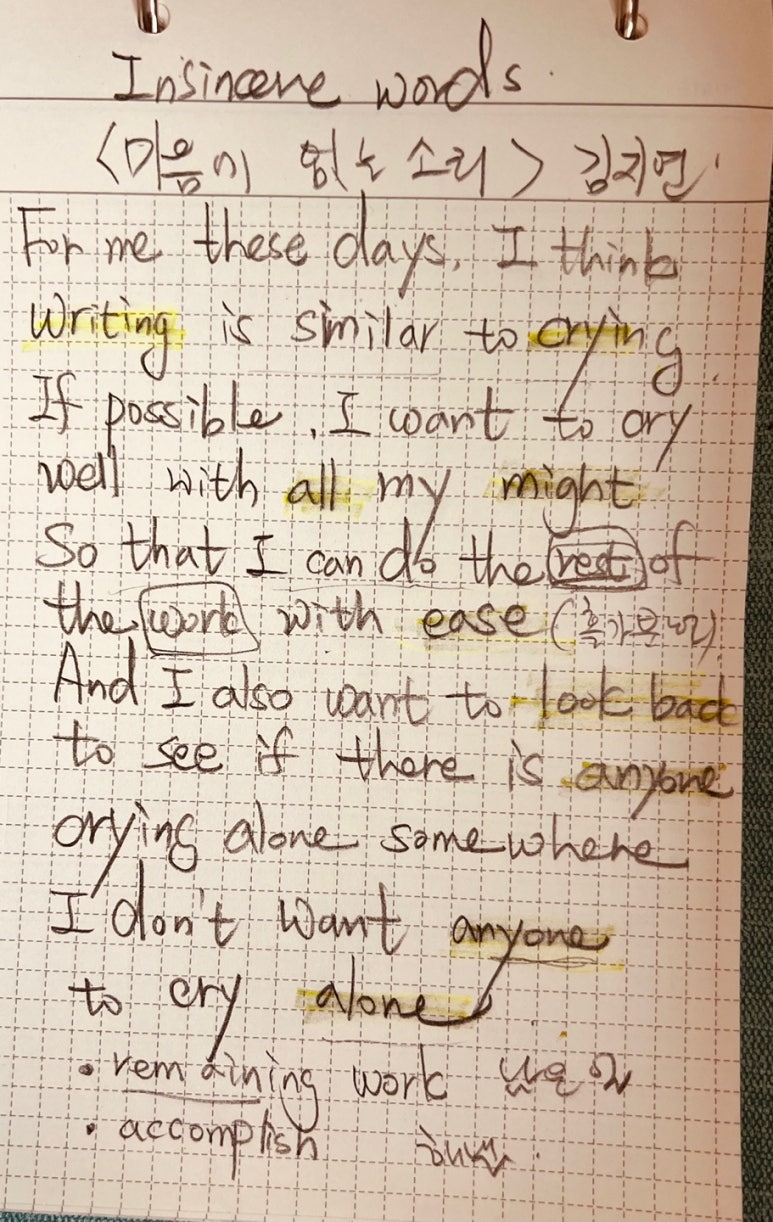 Insincere words.
<마음이 없는 소리> 김지연.
For me these days, I think
Writing is similar to crying.
If possible, I want to cry
well with all my might
So that I can do the rest of
the work with ease (홀가분하게)
And I also want to look back
to see if there is anyone
crying alone somewhere
I don't want anyone
to cry alone
• remaining work 남은 일
• accomplish